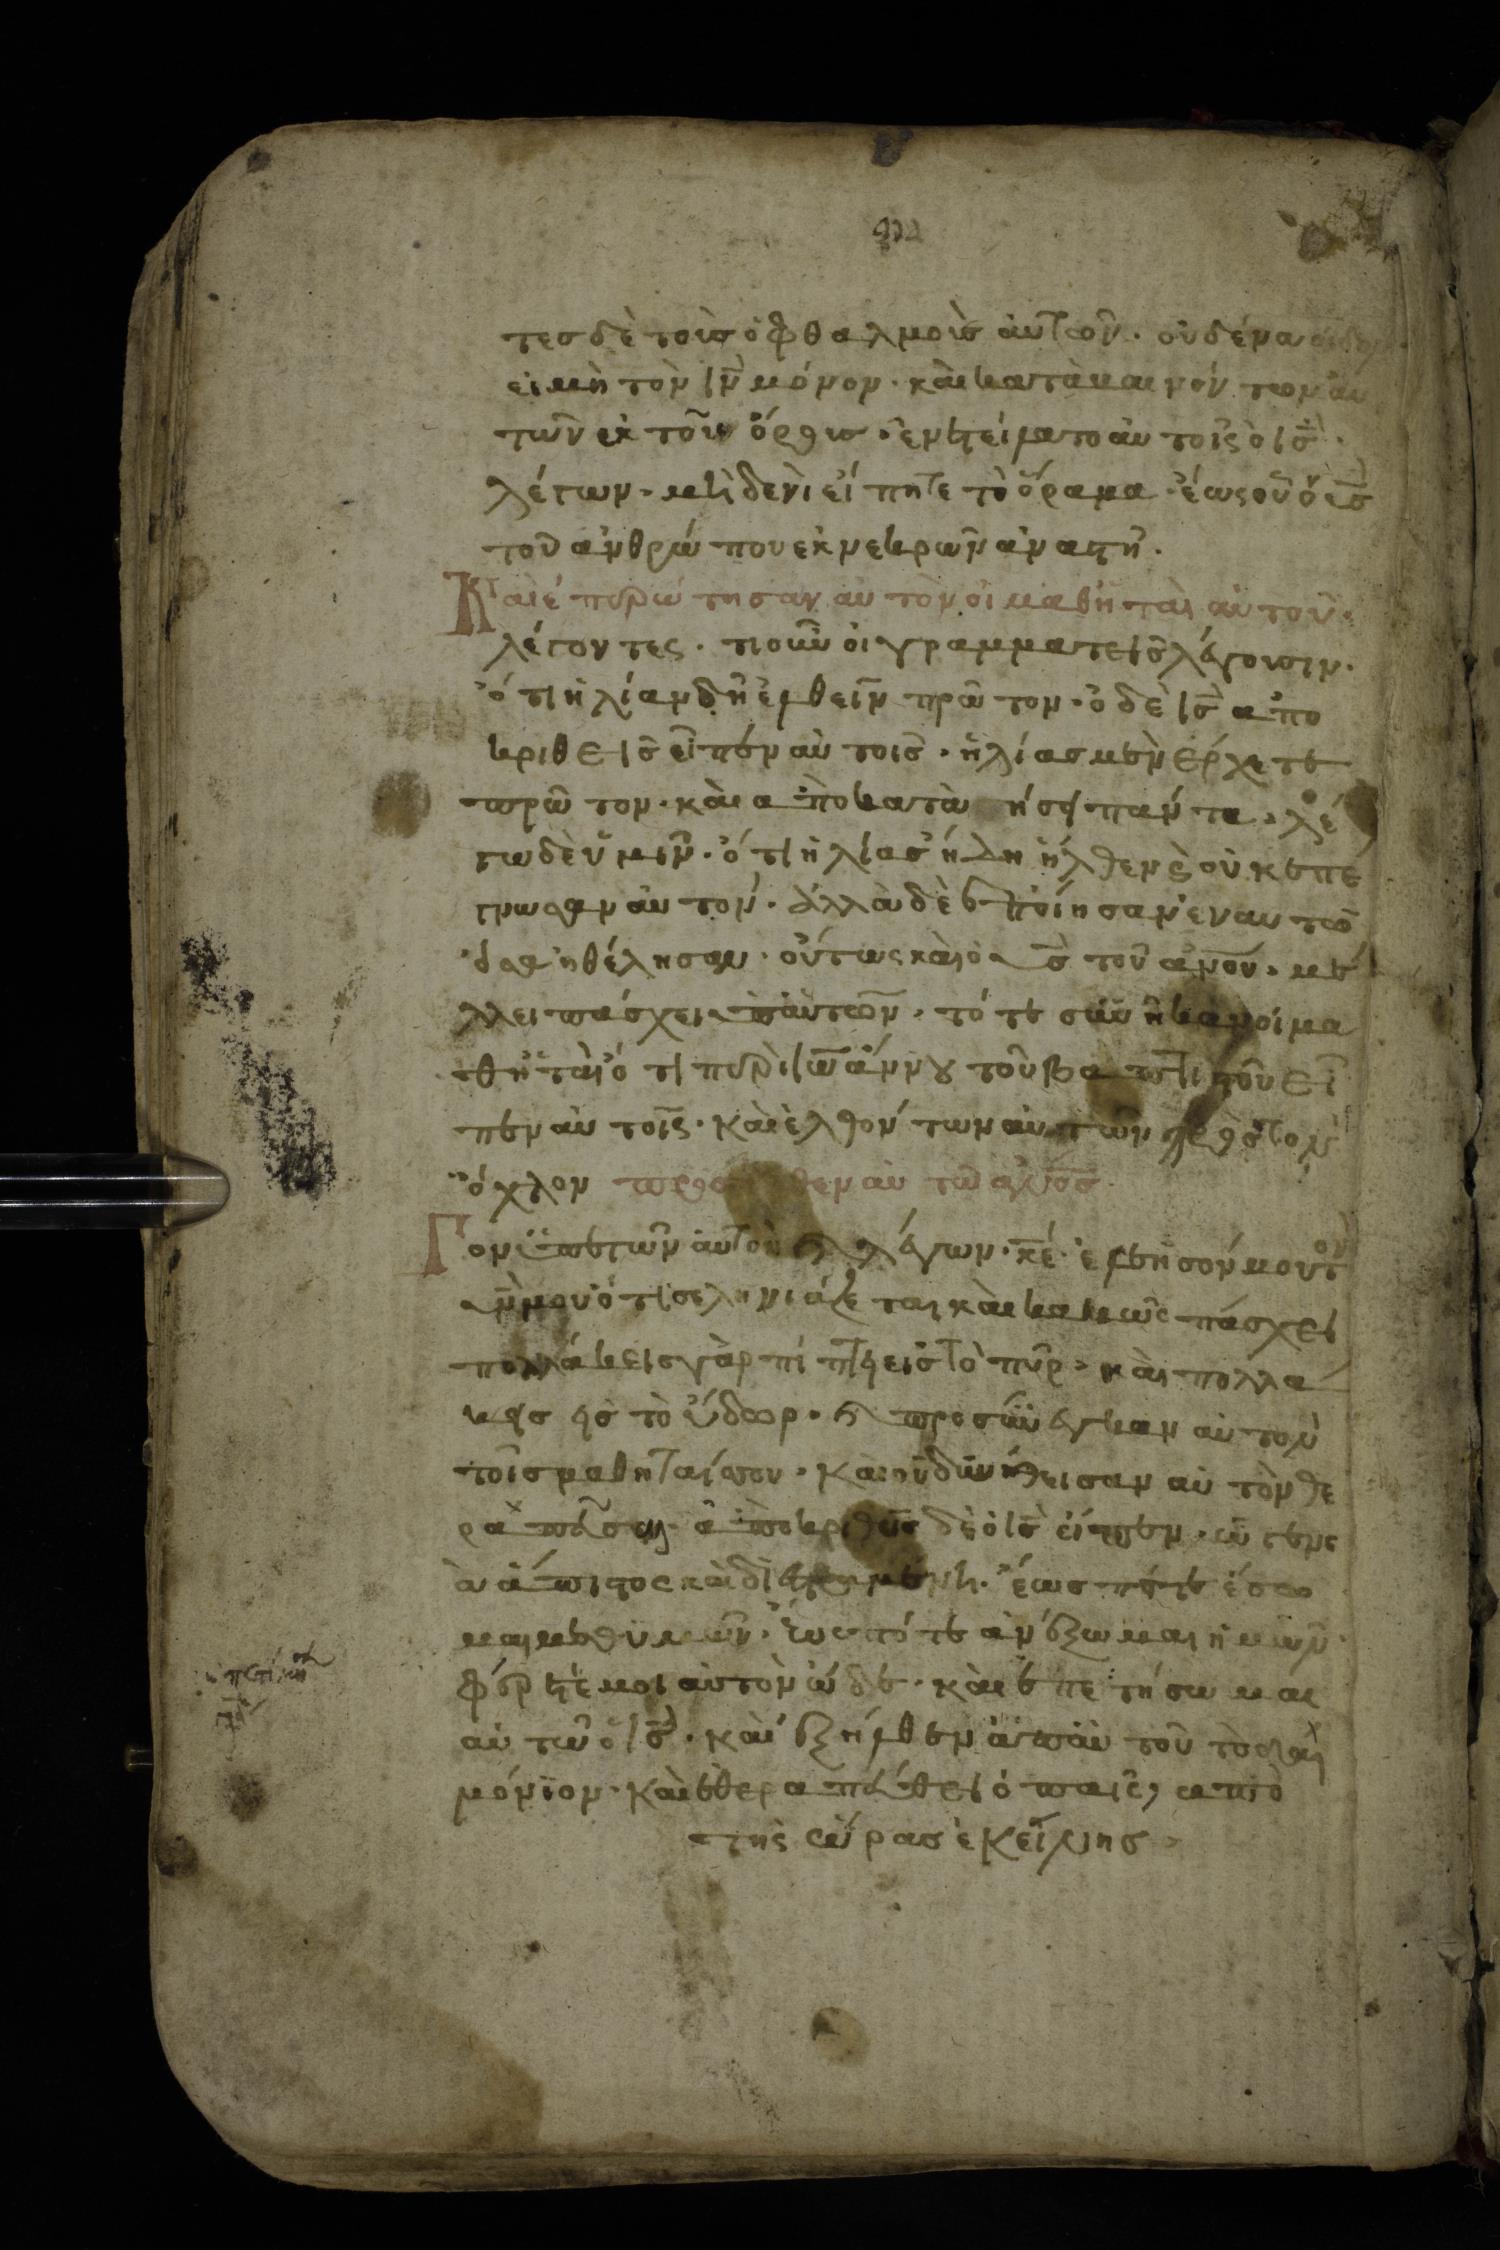 τες δὲ τοὺς ὀφθαλμοὺς αὐτῶν· οὐδένα εἶδον
εἰ μὴ τὸν ἰν̅ μόνον· καὶ καταβαινόντων αὐ
τῶν ἐκ τοῦ ὄρους· ἐνετείλατο αὐτοῖς ὁ ις̅·
λέγων· μηδενὶ εἴπητε τὸ ὅραμα· ἕως οὗ ὁ υς̅
τοῦ ἀνθρώπου ἐκ νεκρῶν ἀναστῆ·
Καὶ ἐπυρώτησαν αὐτὸν οἱ μαθηταὶ αὐτοῦ·
λέγοντες· τί οὖν οἱ γραμματεῖς λέγουσιν·
ὅτι ἠλίαν δεῖ ἐλθεῖν πρῶτον· ὁ δὲ ις̅ ἀπο
κριθεὶς εἶπεν αὐτοῖς· ἠλίας μὲν ἔρχετε
πρῶτον· καὶ ἀποκαταστήσει πάντα· λέ
γω δὲ ὑμῖν· ὅτι ἠλίας ἤδη ἦλθεν ϗ οὐκ ἐπέ
γνωσαν αὐτόν· ἀλλὰ δὲ ἐποίησαν ἐν αὐτῶ
ὅσα ἠθέλησαν· οὕτως καὶ ὁ υς̅ τοῦ ἀνου̅· μέ
λλει πάσχειν ὑπ' αὐτῶν· τότε συνῆκαν οἱ μα
θηταὶ ὅτι περὶ ἰω̅άννου τοῦ βαπτιστοῦ εἶ
πεν αὐτοῖς· καὶ ἐλθόντων αὐτῶν πρὸς τὸν
ὄχλον προσῆλθεν αὐτῶ ἀνο̅ς
Γονυπετῶν αὐτὸν ϗ λέγων· κε̅· ἐλέησόν μου τὸν
υν̅ μου ὅτι σεληνιάζεται καὶ κακῶς πάσχει
πολλάκεις γὰρ πίπτει εἰς τὸ πῦρ· καὶ πολλά
κις εἰς τὸ ὕδωρ· ϗ προσήνεγκαν αὐτὸν
τοῖς μαθηταῖς σου· καὶ οὐδυνήθεισαν αὐτὸν θε
ραπεῦσαι· ἀποκριθεὶς δὲ ὁ ις̅ εἶπεν· ὦ γενε
ὰ ἄπιστος καὶ διεστραμμένη· ἕως πότε ἔσω
μαι μεθ' ὑμῶν· ἕως πότε ἀνέξωμαι ἡμῶν·
φέρετέ μοι αὐτὸν ὧδε· καὶ ἐπετήσω μαι
αὐτῶ ὁ ις̅· καὶ ἐξῆλθεν ἀπ' αὐτοῦ τὸ δαι
μόνιον· καὶ ἐθεραπεύθει ὁ παῖς, ἀπὸ
τῆς ὥρας ἐκείνης·